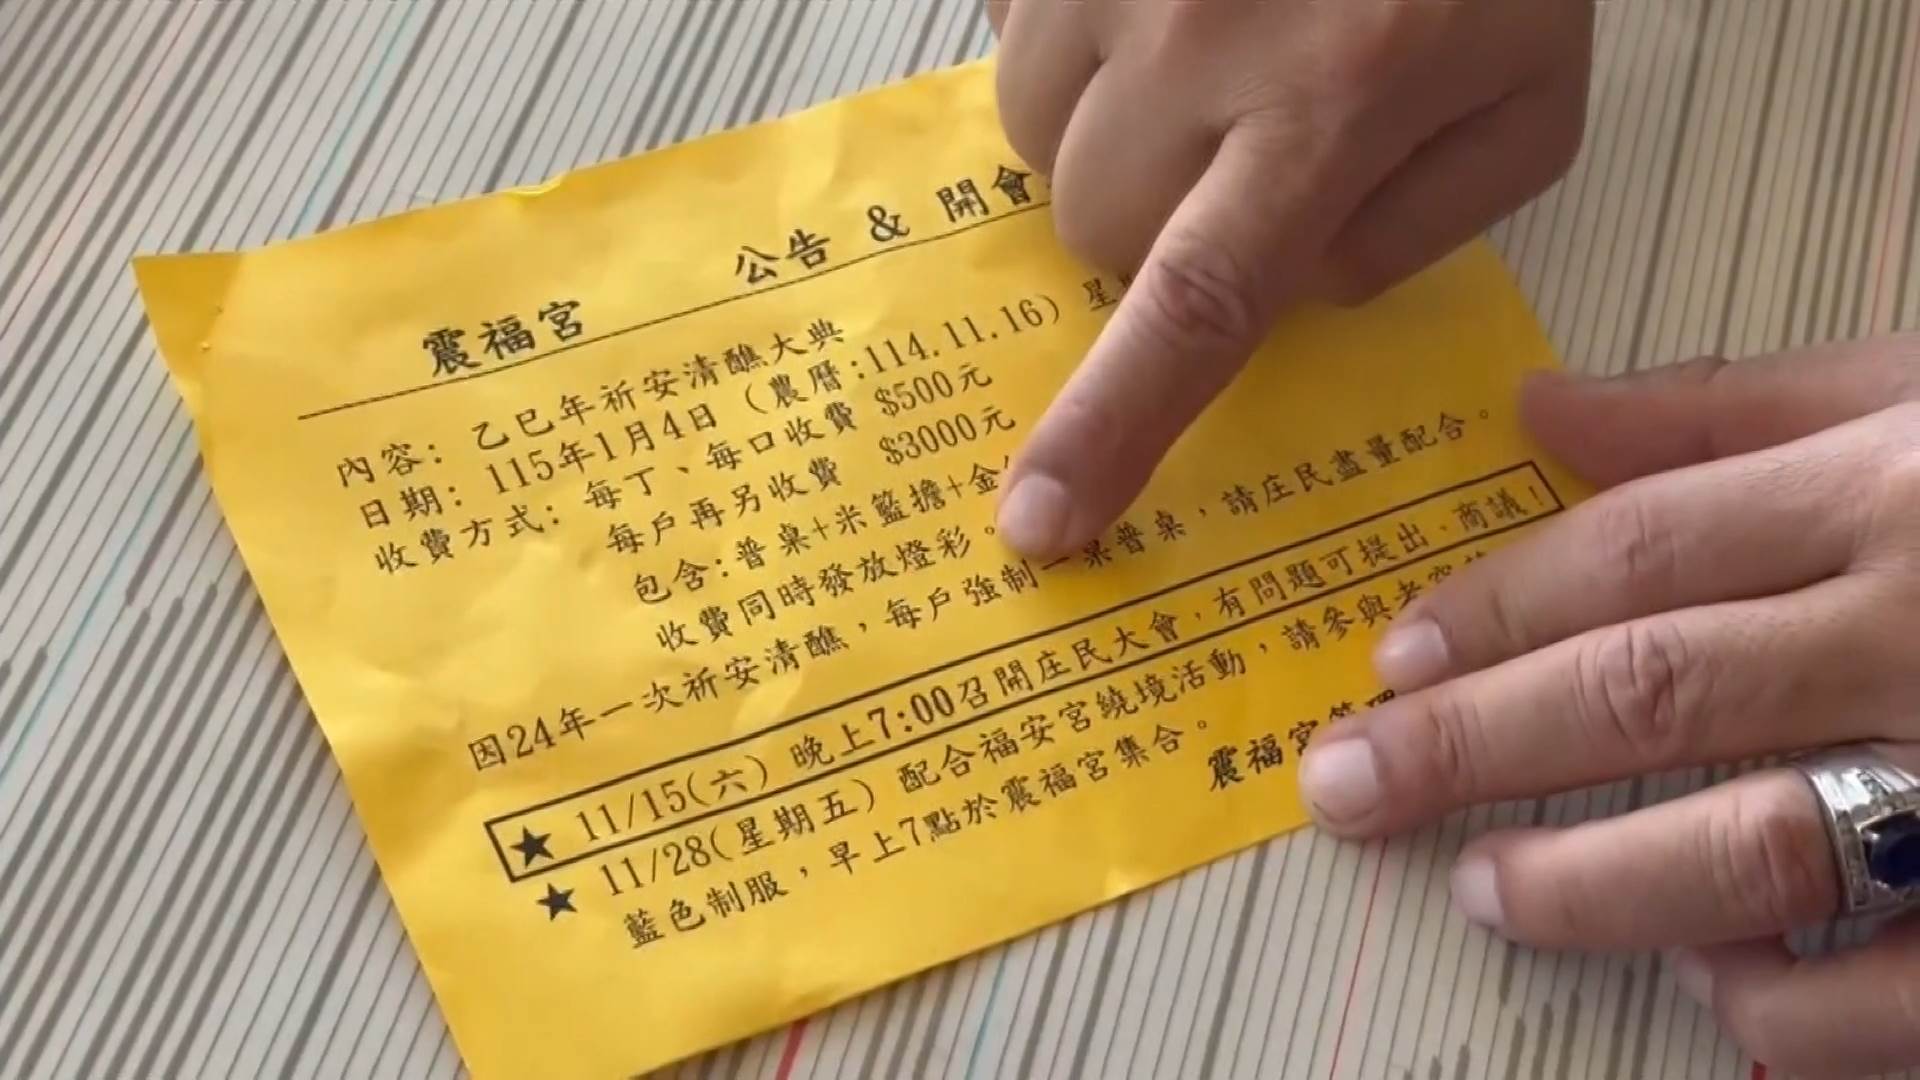 震福宮 公告 & 開會
內容: 乙巳年祈安清醮大典
日期: 115年1月4日 (農曆:114.11.16) 星
收費方式: 每丁、每口收費 $500元
每戶再另收費 $3000元
包含:普桌+米籃擔+金
收費同時發放燈彩。
因24年一次祈安清醮，每戶強制一桌普桌，請庄民盡量配合。
★ 11/15(六) 晚上7:00召開庄民大會，有問題可提出、商議!
★ 11/28(星期五) 配合福安宮繞境活動，請參與者穿
藍色制服，早上7點於震福宮集合。
震福宮管理